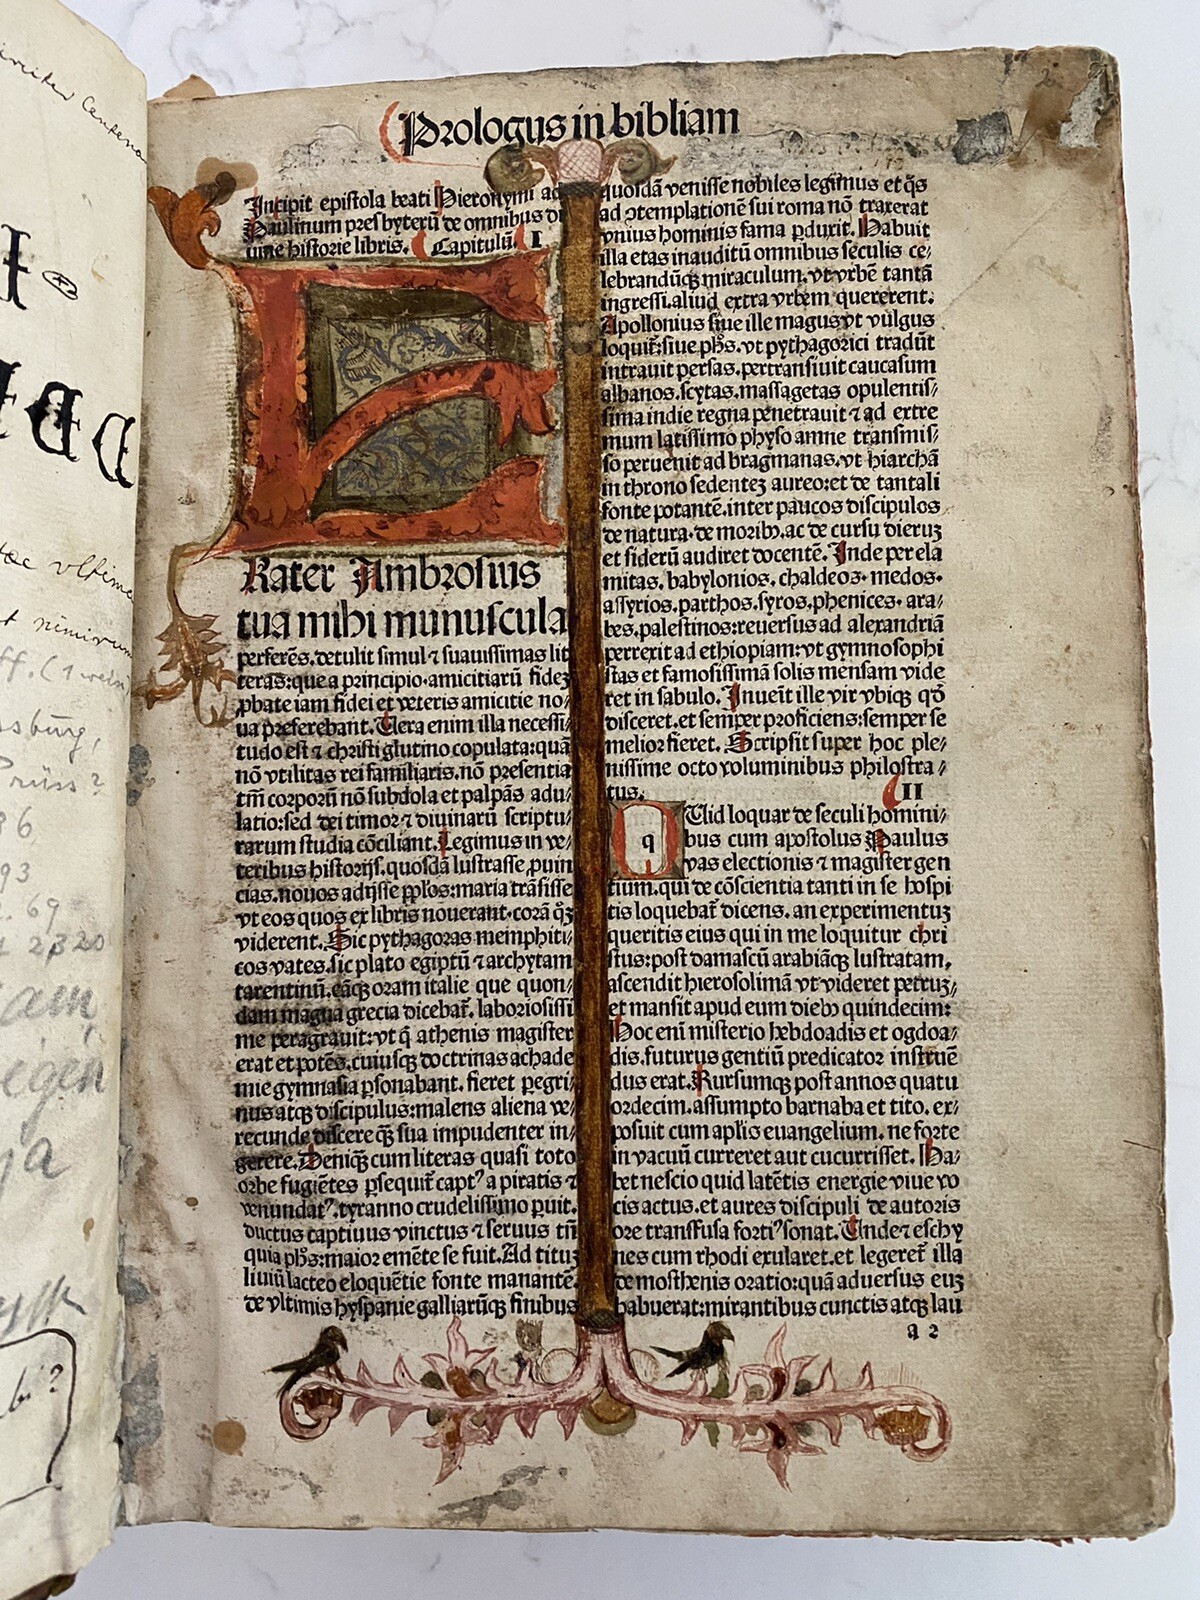 Prologus in bibliam
Incipit epistola beati Hieronymi ad
Paulinum presbyterū de omnibus di
uine historie libris. Capitulū. I
Rater Ambrosius
tua mihi munuscula
perferēs. detulit simul ⁊ suauissimas lit
teras: que a principio amicitiarū fidez
ꝓbate iam fidei et veteris amicitie no⸗
ua preferebant. Vera enim illa necessi⸗
tudo est ⁊ christi glutino copulata: quā
nō vtilitas rei familiaris. nō presentia
tm̄ corporū nō subdola et palpās adu⸗
latio: sed dei timor ⁊ diuinarū scriptu⸗
rarum studia cōciliant. Legimus in ve⸗
teribus historijs. quosdā lustrasse ꝓuin
cias. nouos adijsse ꝓplos: maria trāsisse
vt eos quos ex libris nouerant. corā qͦꝫ
viderent. Sic pythagoras memphiti⸗
cos vates. sic plato egiptū ⁊ archytam
tarentinū. eāqꝫ oram italie que quon⸗
dam magna grecia dicebat̄. laboriosissi
me peragrauit: vt q̄ athenis magister
erat et potēs. cuiusqꝫ doctrinas achade
mie gymnasia ꝑsonabant. fieret pegri⸗
nus atqꝫ discipulus: malens aliena ve⸗
recunde discere qꝫ sua impudenter in⸗
gerere. Deniqꝫ cum literas quasi toto
orbe fugiētes ꝑsequit̄ capt⁹ a piratis ⁊
venundat⁹. tyranno crudelissimo ꝑuit.
ductus captiuus vinctus ⁊ seruus tn̄
quia ph̄s: maior emēte se fuit. Ad tituz
liuiū lacteo eloquētie fonte manantē.
de vltimis hyspanie galliarūqꝫ finibus
quosdā venisse nobiles legimus et q̄s
ad ꝯtemplationē sui roma nō traxerat
vnius hominis fama ꝑduxit. Habuit
illa etas inauditū omnibus seculis ce⸗
lebrandūqꝫ miraculum. vt vrbē tantā
ingressi. aliud extra vrbem quererent.
Apollonius siue ille magus vt vulgus
loquit̄: siue ph̄s. vt pythagorici tradūt
intrauit persas. pertransiuit caucasum
albanos. scytas. massagetas opulentis⸗
sima indie regna penetrauit ⁊ ad extre
mum latissimo physo amne transmis⸗
so peruenit ad bragmanas. vt hiarchā
in throno sedentez aureo: et de tantali
fonte potantē. inter paucos discipulos
de natura. de moribꝫ. ac de cursu dieruz
et siderū audiret docentē. Inde per ela
mitas. babylonios. chaldeos. medos.
assyrios. parthos. syros. phenices. ara⸗
bes. palestinos: reuersus ad alexandriā
perrexit ad ethiopiam: vt gymnosophi
stas et famosissimā solis mensam vide
ret in sabulo. Inuenit ille vir vbiqꝫ qͦd
disceret. et semper proficiens: semper se
melior fieret. Scripsit super hoc ple⸗
nissime octo voluminibus philostra⸗
tus.
II
q
Uid loquar de seculi homini⸗
bus cum apostolus Paulus
vas electionis ⁊ magister gen
tium. qui de cōscientia tanti in se hospi
tis loquebat̄ dicens. an experimentuz
queritis eius qui in me loquitur chri
stus: post damascū arabiāqꝫ lustratam,
ascendit hierosolimā vt videret petruz,
et mansit apud eum diebꝫ quindecim:
Hoc enī misterio hebdoadis et ogdoa⸗
dis. futurus gentiū predicator instruē
dus erat. Rursumqꝫ post annos quatu
ordecim. assumpto barnaba et tito. ex⸗
posuit cum aplis euangelium. ne forte
in vacuū curreret aut cucurrisset. Ha⸗
bet nescio quid latētis energie viue vo
cis actus. et aures discipuli de autoris
ore transfusa forti⁹ sonat. Unde ⁊ eschy
nes cum rhodi exularet. et legeret̄ illa
demosthenis oratio: quā aduersus euz
habuerat: mirantibus cunctis atqꝫ lau
a 2